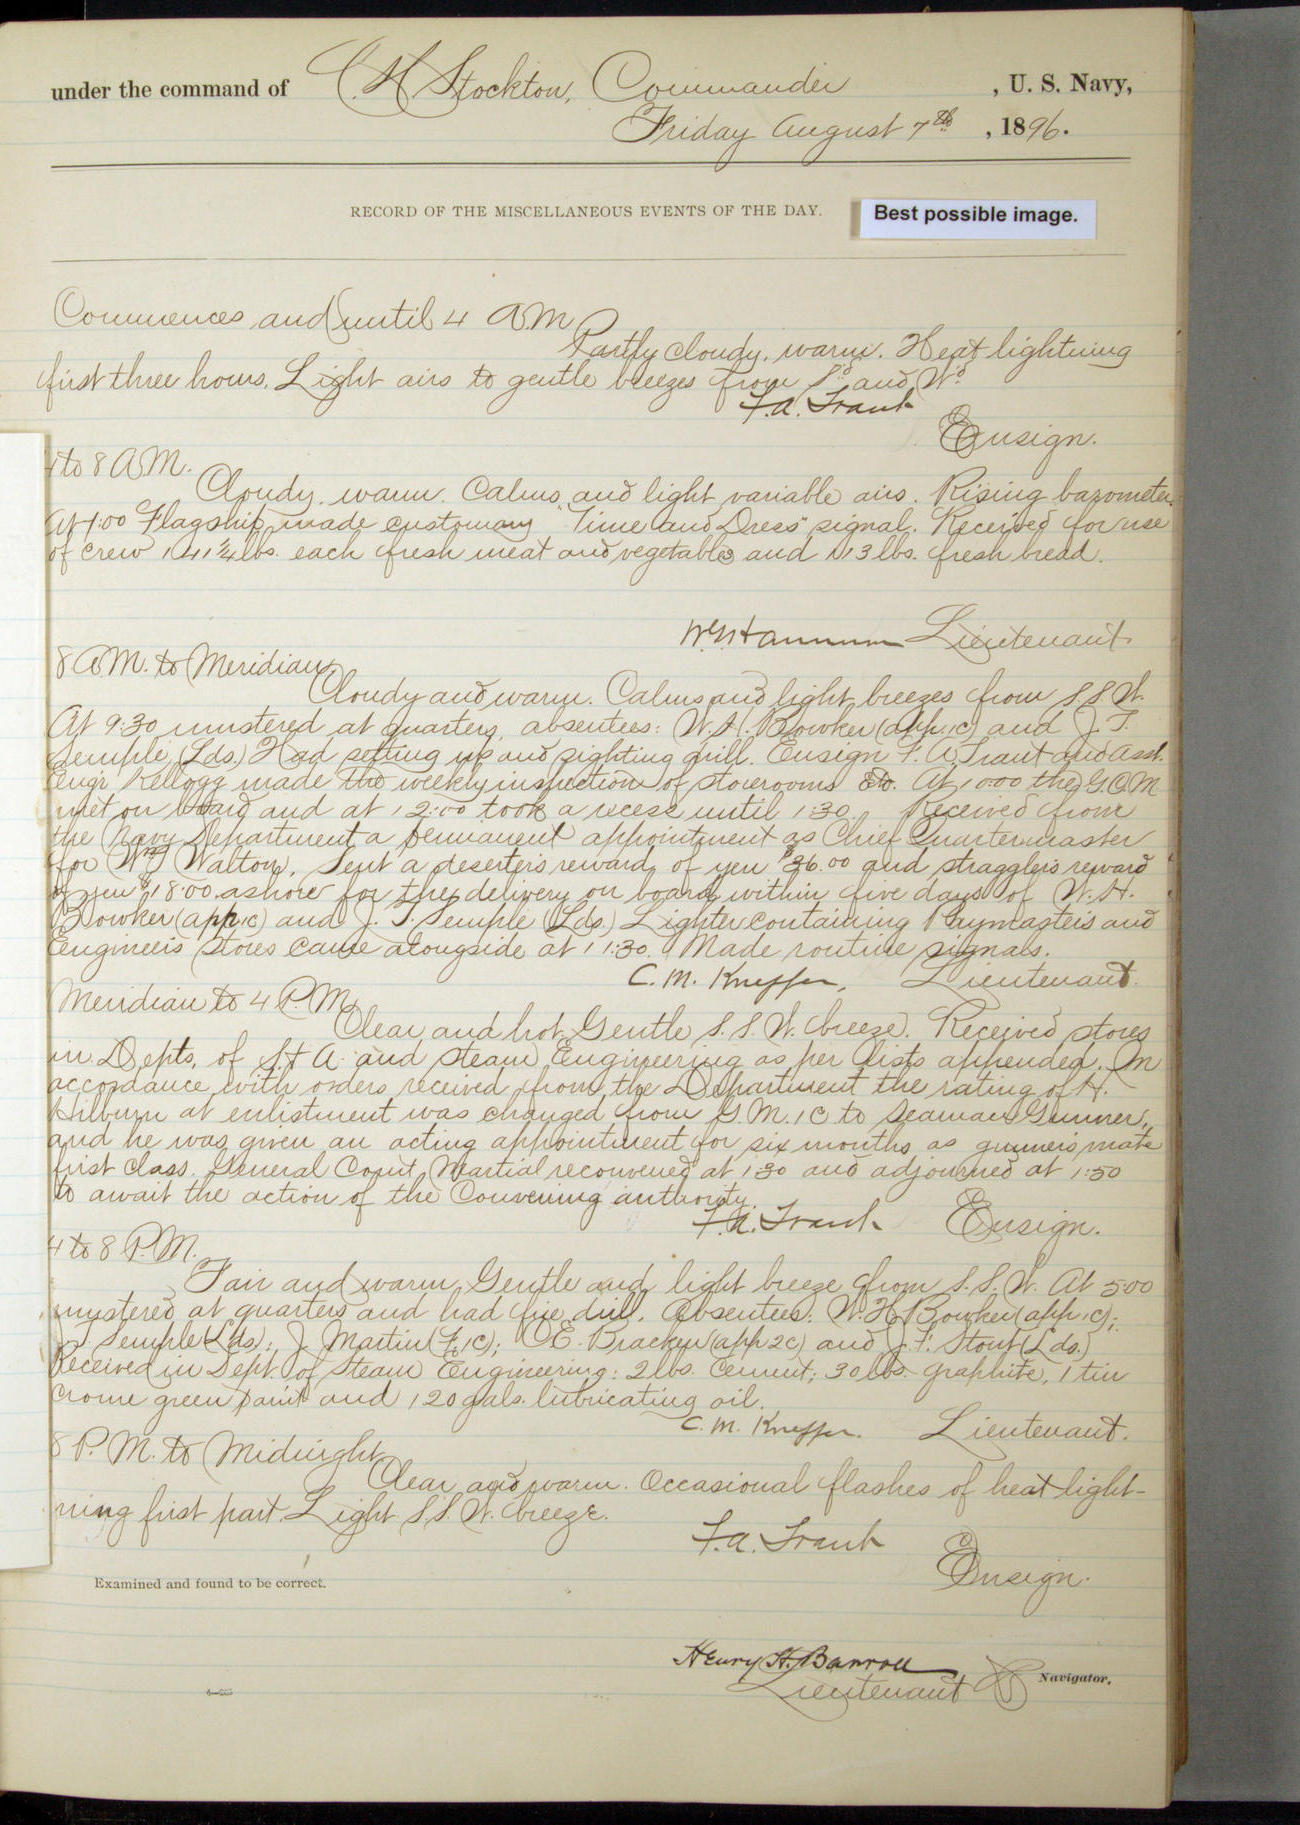 under the command of C. H. Stockton, Commander , U. S. Navy,
Friday August 7th , 1896.
RECORD OF THE MISCELLANEOUS EVENTS OF THE DAY.
Best possible image.
Commences and until 4 A.M.
Partly cloudy, warm. Heat lightning
first three hours. Light airs to gentle breezes from Sd. and Wd.
F. A. Traut
Ensign.
4 to 8 A.M.
Cloudy, warm. Calms and light variable airs. Rising barometer.
At 7:00 Flagship made customary "Time and Dress" signal. Received for use
of crew 141 ¼ lbs. each fresh meat and vegetables and 113 lbs. fresh bread.
Lieutenant.
8 A.M. to Meridian.
Cloudy and warm. Calms and light breezes from S.S.W.
At 9:30 mustered at quarters, absentees: W. H. Bowker (app.1c) and J. T.
Semple (Lds.) Had setting up and sighting drill. Ensign F. A. Traut and Asst.
Engr. Kellogg made the weekly inspection of storerooms etc. At 10:00 the G.C.M.
met on board and at 12:00 took a recess until 1:30. Received from
the Navy Department a permanent appointment as Chief Quartermaster
for Walton. Sent a deserter's reward of yen $36.00 and straggler's reward
of yen $18.00 ashore for the delivery on board within five days of W. H.
Bowker (app.1c) and J. T. Semple (Lds.) Lighter containing Paymaster's and
Engineer's stores came alongside at 11:30. Made routine signals.
C. M. Knepper, Lieutenant.
Meridian to 4 P.M.
Clear and hot. Gentle S.S.W. breeze. Received stores
in Depts. of S. & A. and Steam Engineering as per lists appended. In
accordance with orders received from the Department the rating of H.
Hilburn at enlistment was changed from G.M.1C to Seaman Gunner,
and he was given an acting appointment for six months as gunner's mate
first class. General Court Martial reconvened at 1:30 and adjourned at 1:50
to await the action of the Convening authority.
F. A. Traut Ensign.
4 to 8 P.M.
Fair and warm. Gentle and light breeze from S.S.W. At 5:00
mustered at quarters and had fire drill. Absentees: W. H. Bowker (app.1c);
Semple (Lds); J. Martin (F.1c); C. E. Bracken (app 2c) and J. F. Stout (Lds.)
Received in Dept. of Steam Engineering: 2 lbs. cement; 30 lbs. graphite, 1 tin
crome green paint and 120 gals. lubricating oil.
C. M. Knepper. Lieutenant.
8 P.M. to Midnight
Clear and warm. Occasional flashes of heat light-
ning first part. Light S.S.W. breeze.
F. A. Traut
Ensign.
Examined and found to be correct.
Henry H. Barroll
Lieutenant Navigator.